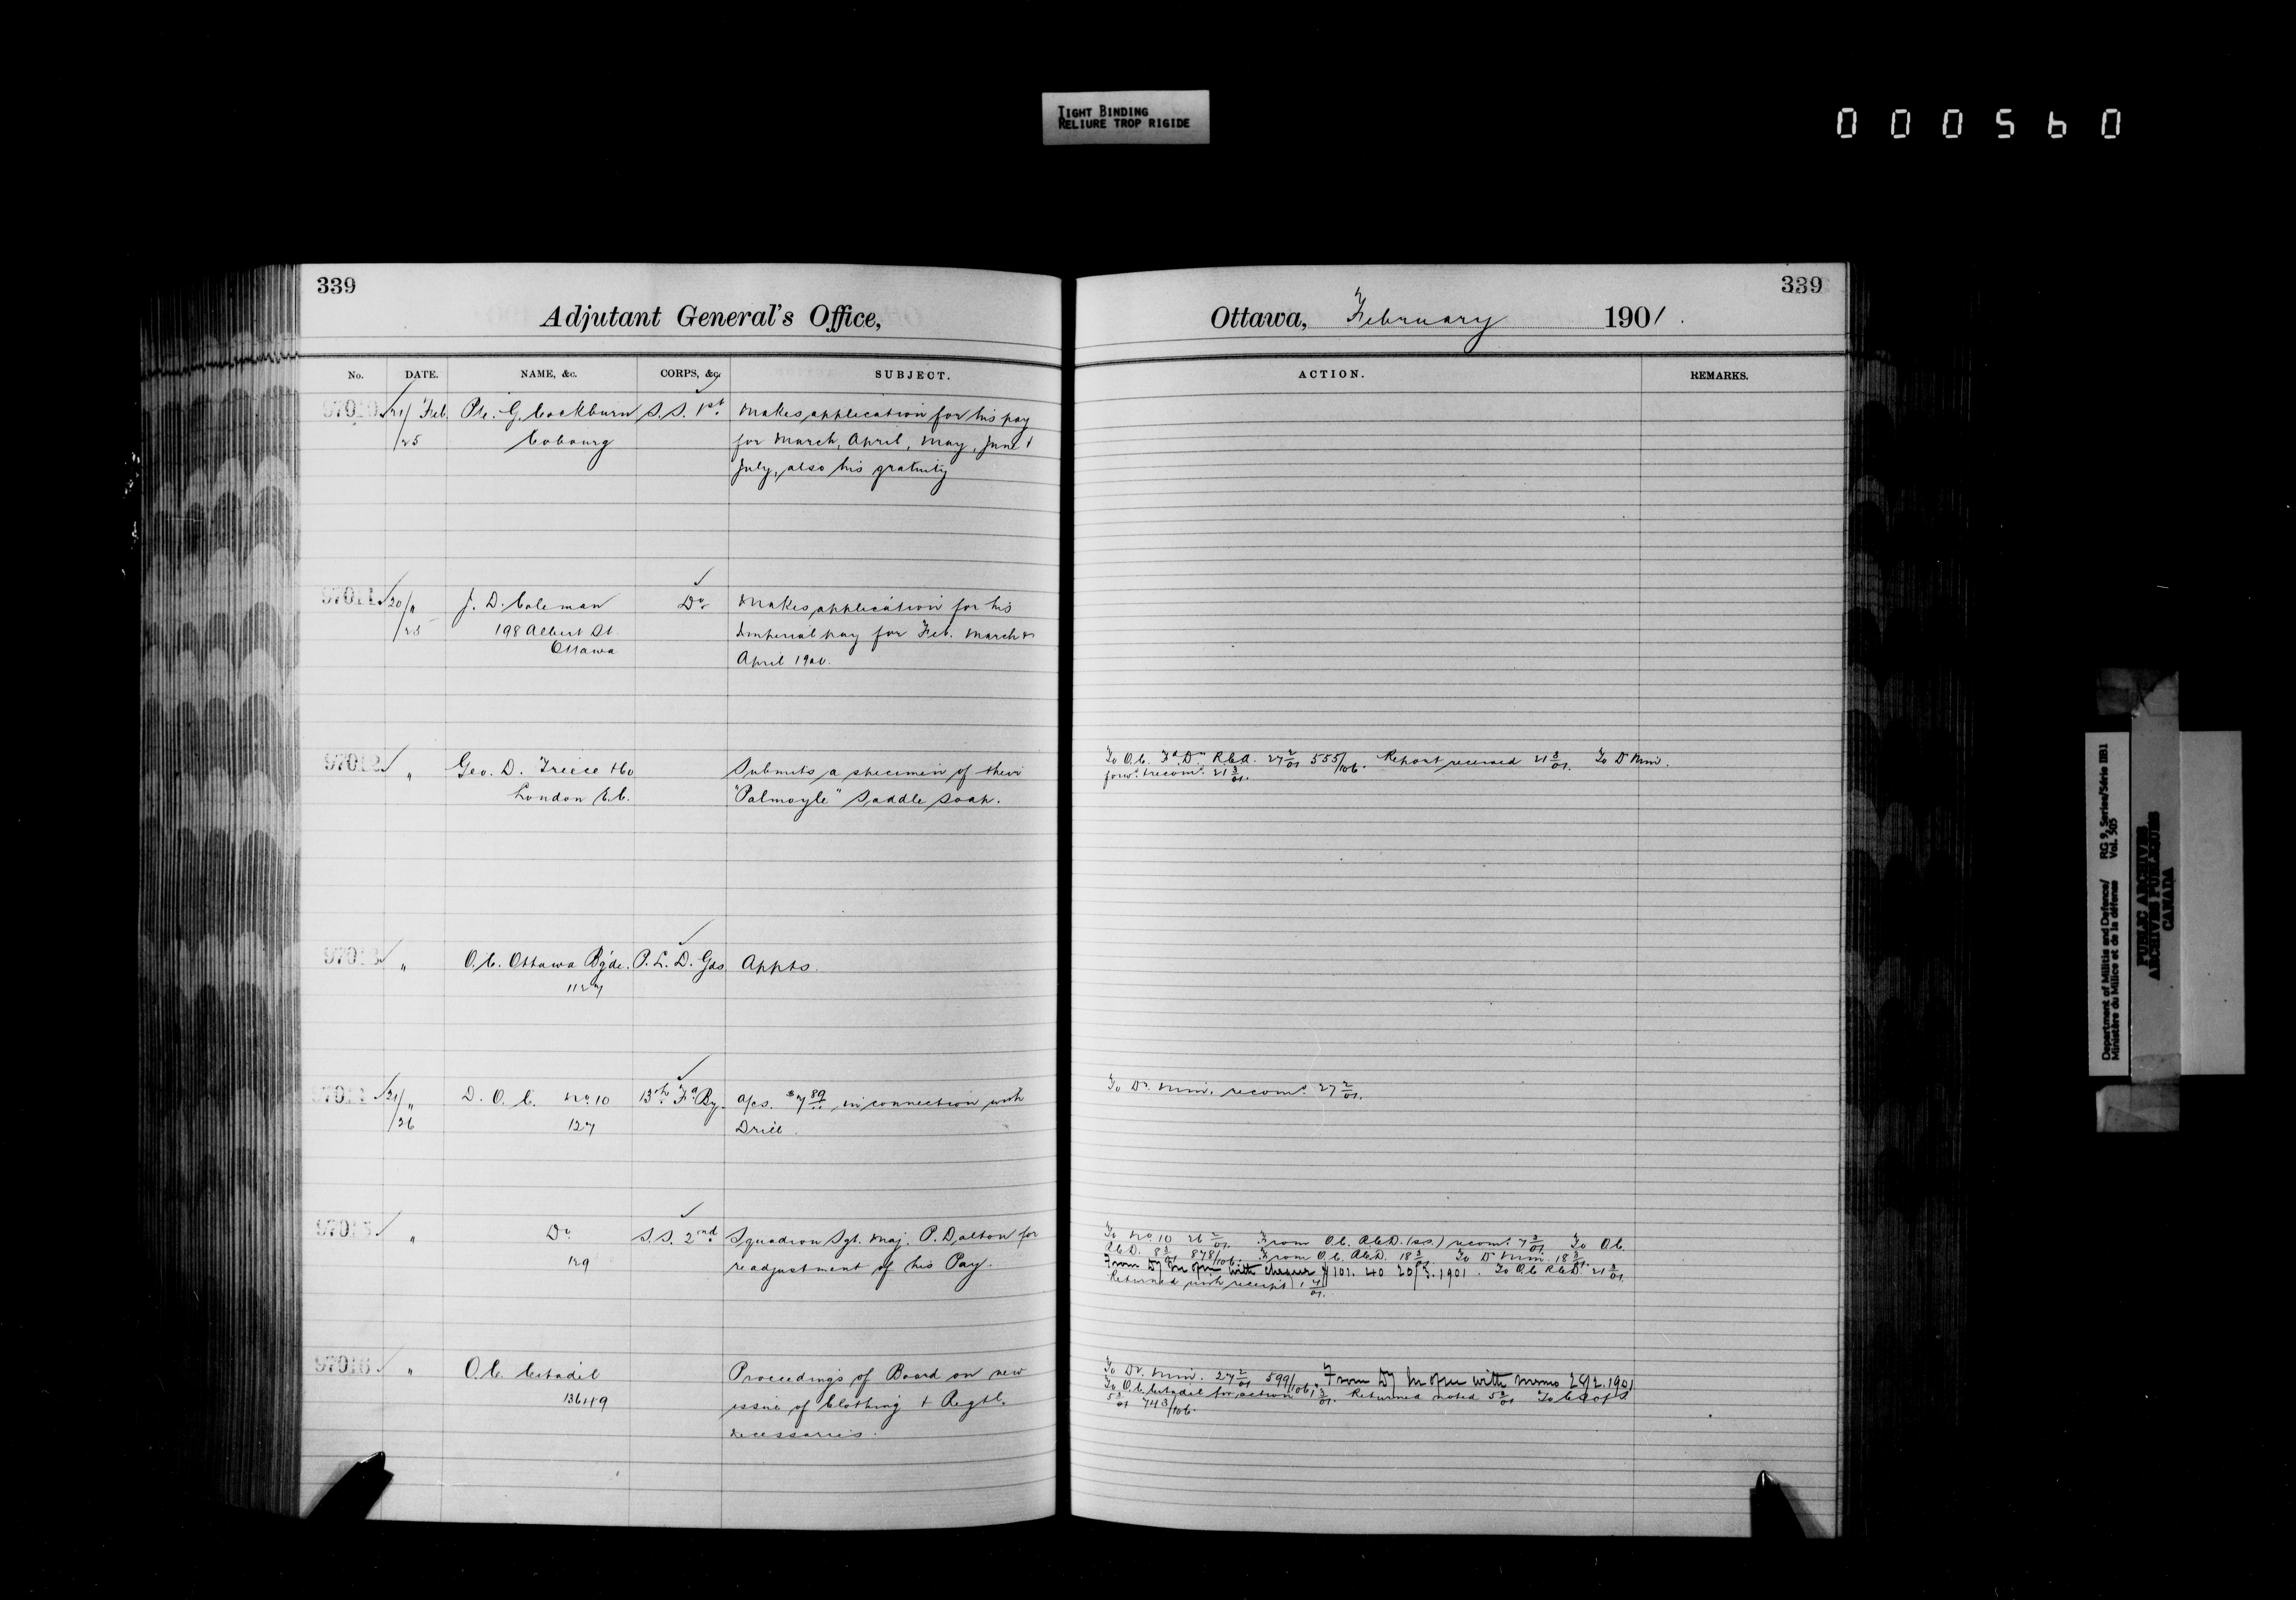 TIGHT BINDING
RELIURE TROP RIGIDE
000560
339
Adjutant General's Office,
No. DATE. NAME, &c. CORPS, &c. SUBJECT.
97010 21/ Feb. Pte. G. Cockburn S. S. 1st. Makes application for his pay
/25 Cobourg for March, April, May, June &
July, also his gratuity
97011 20/ " J. D. Coleman Do Makes application for his
/25 198 Albert St. Imperial pay for Feb. March &
Ottawa April 1900.
97012 " Geo. D. & Co Submits a specimen of their
London E.C. "Palmoyle" Saddle Soap.
97013 " O.C. Ottawa Bgde. P. L. D. Gds Appts.
1127
97014 21/ " D. O. C. No 10 13th Fd By. a/cs. $7 89 in connection with
/26 127 Drill.
97015 " Do S. S. 2nd. Squadron Sgt. Maj. P. Dalton for
129 readjustment of his Pay.
97016 " O.C. Citadel Proceedings of Board on new
136119 issue of Clothing & Regtl.
necessaries.
339
Ottawa, February 1901.
ACTION. REMARKS.
To O.C. Fd Dn R.C.A. 27 2/01 555/106. Report received 21 3/01. To D Min.
forwd. & recomd. 21 3/01.
To Dr. Min. recomd. 27 2/01.
To No 10 26 2/01. From O.C. (S.S.) recomd. 7 3/01 To O.C.
8 3/01 878/106 From O.C. 18 3/01 To D Min. 18 3/01
From with cheque 101.40 20/3.1901. To O.C. R.C.D. 21 3/01.
Returned with receipt 1 4/01.
To Dr. Min. 27 2/01 599/106. From with memo 28/2.1901
To O.C. Citadel for action 1 3/01. Returned noted 5 3/01 To C S of S
5 3/01 743/106.
Department of Militia and Defence/ RG 9, Series/Série IIB1
Ministère du Milice et de la défense Vol. 505
PUBLIC ARCHIVES
ARCHIVES PUBLIQUES
CANADA